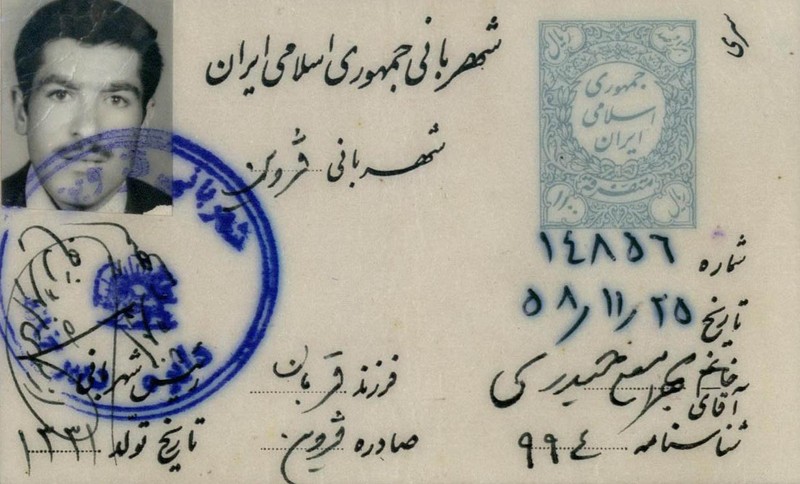 سری
شهربانی جمهوری اسلامی ایران
ریال
جمهوری
اسلامی
ایران
متفرقه
۱۰۰
ریال
شهربانی قزوین
شماره ۱۴۸۵۶
تاریخ ۵۸/۱۱/۲۵
خانم
آقای حیدری
فرزند قربان
رئیس شهربانی
شناسنامه ۹۹۴
صادره قزوین
تاریخ تولد ۱۳۳۱
شهربانی